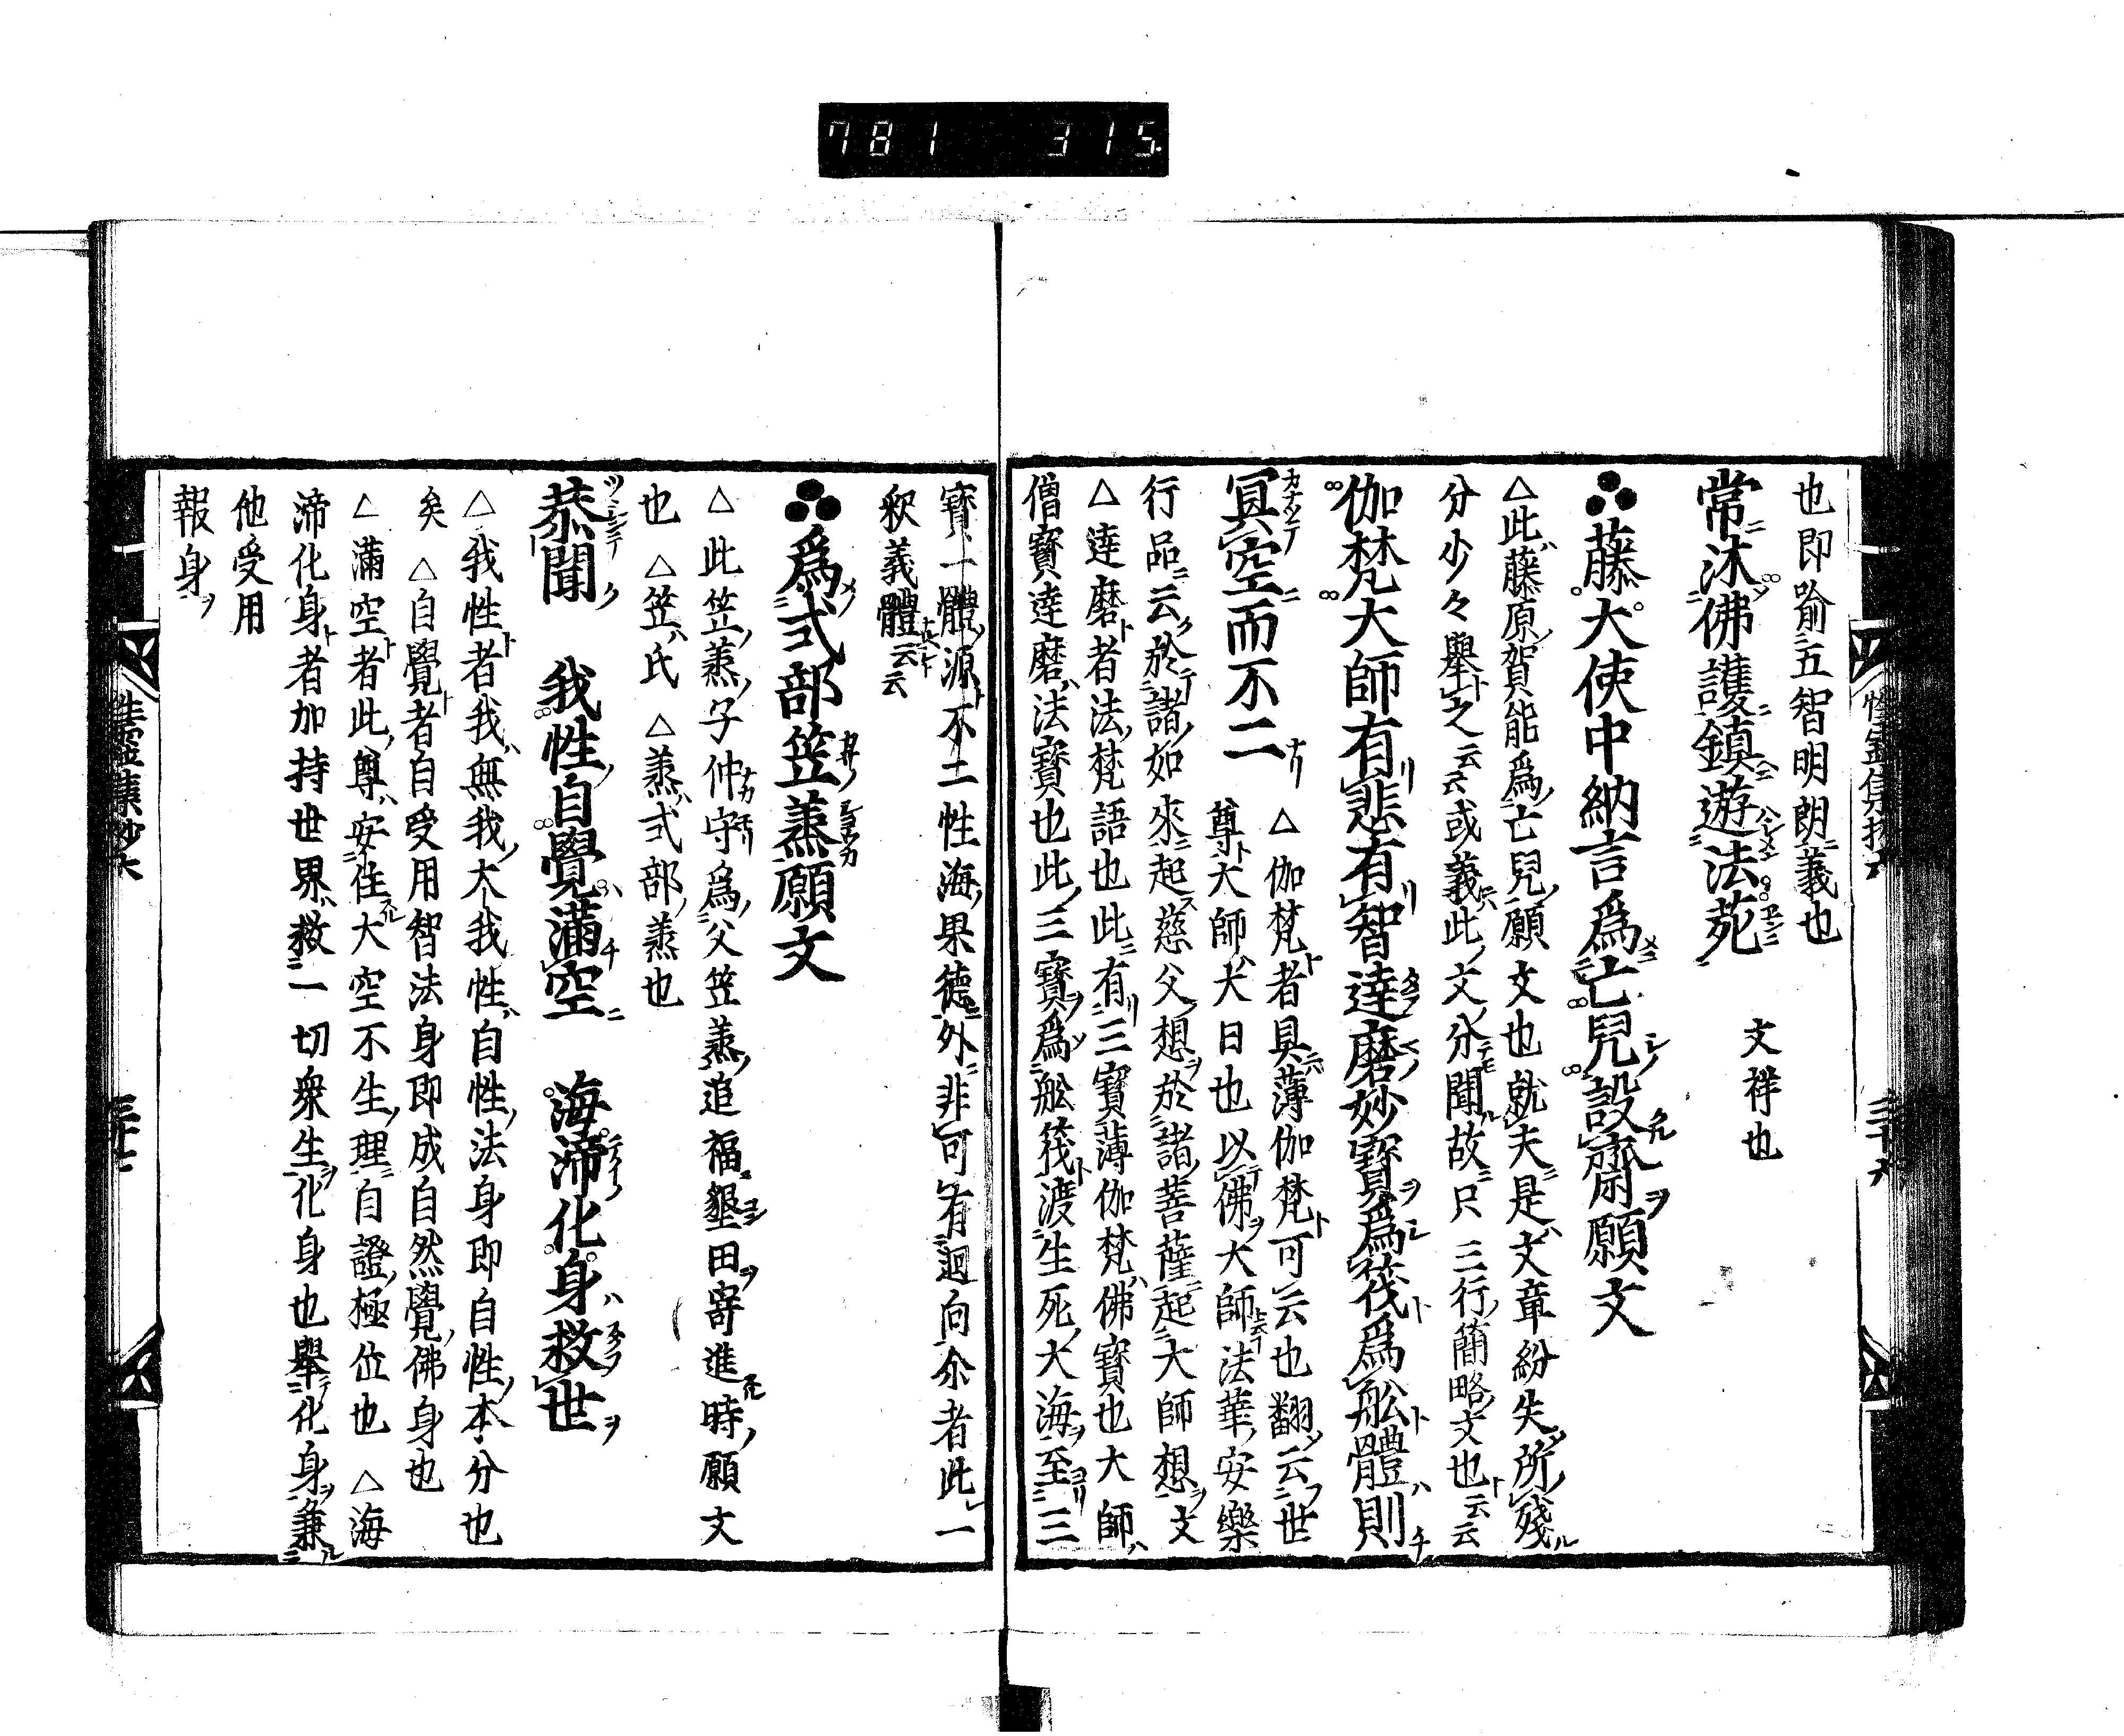 781 315
也即喻五智明朗義也
常沐佛護鎮遊法苑 文祥也
藤大使中納言爲亡兒設齋願文
△此藤原賀能爲亡兒願文也就夫是文章紛失所殘
分少々舉之云云或義此文分聞故只三行簡略文也云云
伽梵大師有悲有智達磨妙寶爲筏爲舩體則
冥空而不二 △伽梵者具薄伽梵可云也翻云世
尊大師大日也以佛大師法華安樂
行品云於諸如來起慈父想於諸菩薩起大師想文
△達磨者法梵語也此有三寶薄伽梵佛寶也大師
僧寶達磨法寶也此三寶爲舩筏渡生死大海至三
寶一體源不二性海果德外非可有迴向尒者此一
釈義體云云
爲式部笠䒱願文
△此笠䒱子仲守爲父笠䒱追福墾田寄進時願文
也 △笠氏 △䒱式部䒱也
恭聞 我性自覺滿空 海渧化身救世
△我性者我無我大我性自性法身即自性本分也
矣 △自覺者自受用智法身即成自然覺佛身也
△滿空者此尊安住大空不生理自證極位也 △海
渧化身者加持世界救一切衆生化身也舉化身兼
他受用
報身